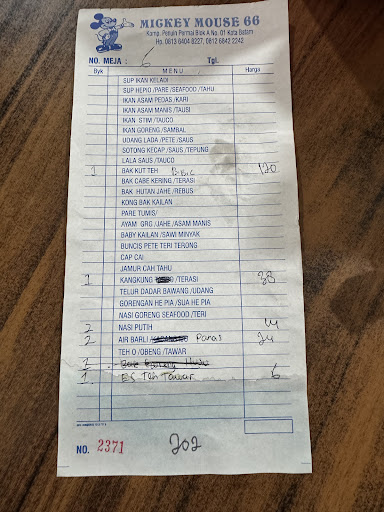 MICKEY MOUSE 66
Komp. Penuin Permai Blok A No. 01 Kota Batam
Hp. 0813 6404 8227, 0812 6842 2242
NO. MEJA : 6 Tgl.
Byk MENU Harga
SUP IKAN KELADI
SUP HEPIO /PARE /SEAFOOD /TAHU
IKAN ASAM PEDAS /KARI
IKAN ASAM MANIS /TAUSI
IKAN STIM /TAUCO
IKAN GORENG /SAMBAL
UDANG LADA /PETE /SAUS
SOTONG KECAP /SAUS /TEPUNG
LALA SAUS /TAUCO
1 BAK KUT TEH 120
BAK CABE KERING /TERASI
BAK HUTAN JAHE /REBUS
KONG BAK KAILAN
PARE TUMIS/
AYAM GRG /JAHE /ASAM MANIS
BABY KAILAN /SAWI MINYAK
BUNCIS PETE TERI TERONG
CAP CAI
JAMUR CAH TAHU
1 KANGKUNG /TERASI 38
TELUR DADAR BAWANG /UDANG
GORENGAN HE PIA /SUA HE PIA
NASI GORENG SEAFOOD /TERI
2 NASI PUTIH 14
2 AIR BARLI / Panas 24
TEH O /OBENG /TAWAR
1 Es Teh Tawar 6
NO. 2371 202